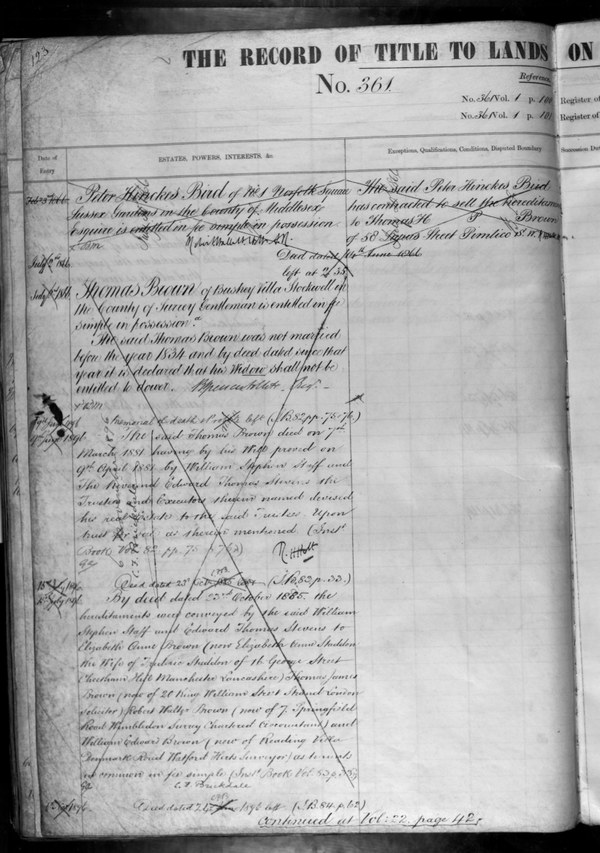 123
THE RECORD OF TITLE TO LANDS ON
No. 361.
Reference
No. 361 Vol. 1 p. 100 Register of
No. 361 Vol. 1 p. 101 Register of
Date of Entry
ESTATES, POWERS, INTERESTS, &c.
Exceptions, Qualifications, Conditions, Disputed Boundary
Succession Duty
Peter Hinckes Bird of No. 1 Norfolk Square
Sussex Gardens in the County of Middlesex
Esquire is entitled in fee simple in possession
The said Peter Hinckes Bird
has contracted to sell the hereditaments
to Thomas Brown
of 58 Street Pimlico
Deed dated 14th June 1866
left at 2/35
Thomas Brown of Bushey Villa Stockwell in
the County of Surrey Gentleman is entitled in fee
simple in possession.
The said Thomas Brown was not married
before the year 1834 and by deed dated since that
year it is declared that his Widow shall not be
entitled to dower.
Memorial of death of left (I.B. 82 pp. 75.76.)
The said Thomas Brown died on 7th
March 1881 having by his Will proved on
9th April 1881 by William Stephen Staff and
The Reverend Edward Thomas Stevens the
Trustees and Executors therein named devised
his real Estate to the said Trustees Upon
trust for sale as therein mentioned (Inst.
Book Vol. 82 pp. 75.76)
R. H. Holt
Deed dated 23rd left (I.B. 82 p. 33.)
By deed dated 23rd October 1885 the
hereditaments were conveyed by the said William
Stephen Staff and Edward Thomas Stevens to
Elizabeth Anne Brown (now Elizabeth Anne Studdon
the Wife of Studdon of George Street
Cheetham Hill Manchester Lancashire) Thomas James
Brown (now of 20 King William Street Strand London
Solicitor) Robert Brown (now of 7 Springfield
Road Wimbledon Surrey Chartered Accountant) and
William Edward Brown (now of Reading Villa
Denmark Road Watford Herts Surveyor) as tenants
in common in fee simple (Inst. Book Vol. 82 p. 33)
Deed dated 1896 left (I.B. 84 p. 62)
Continued at Vol: 22. page 42.